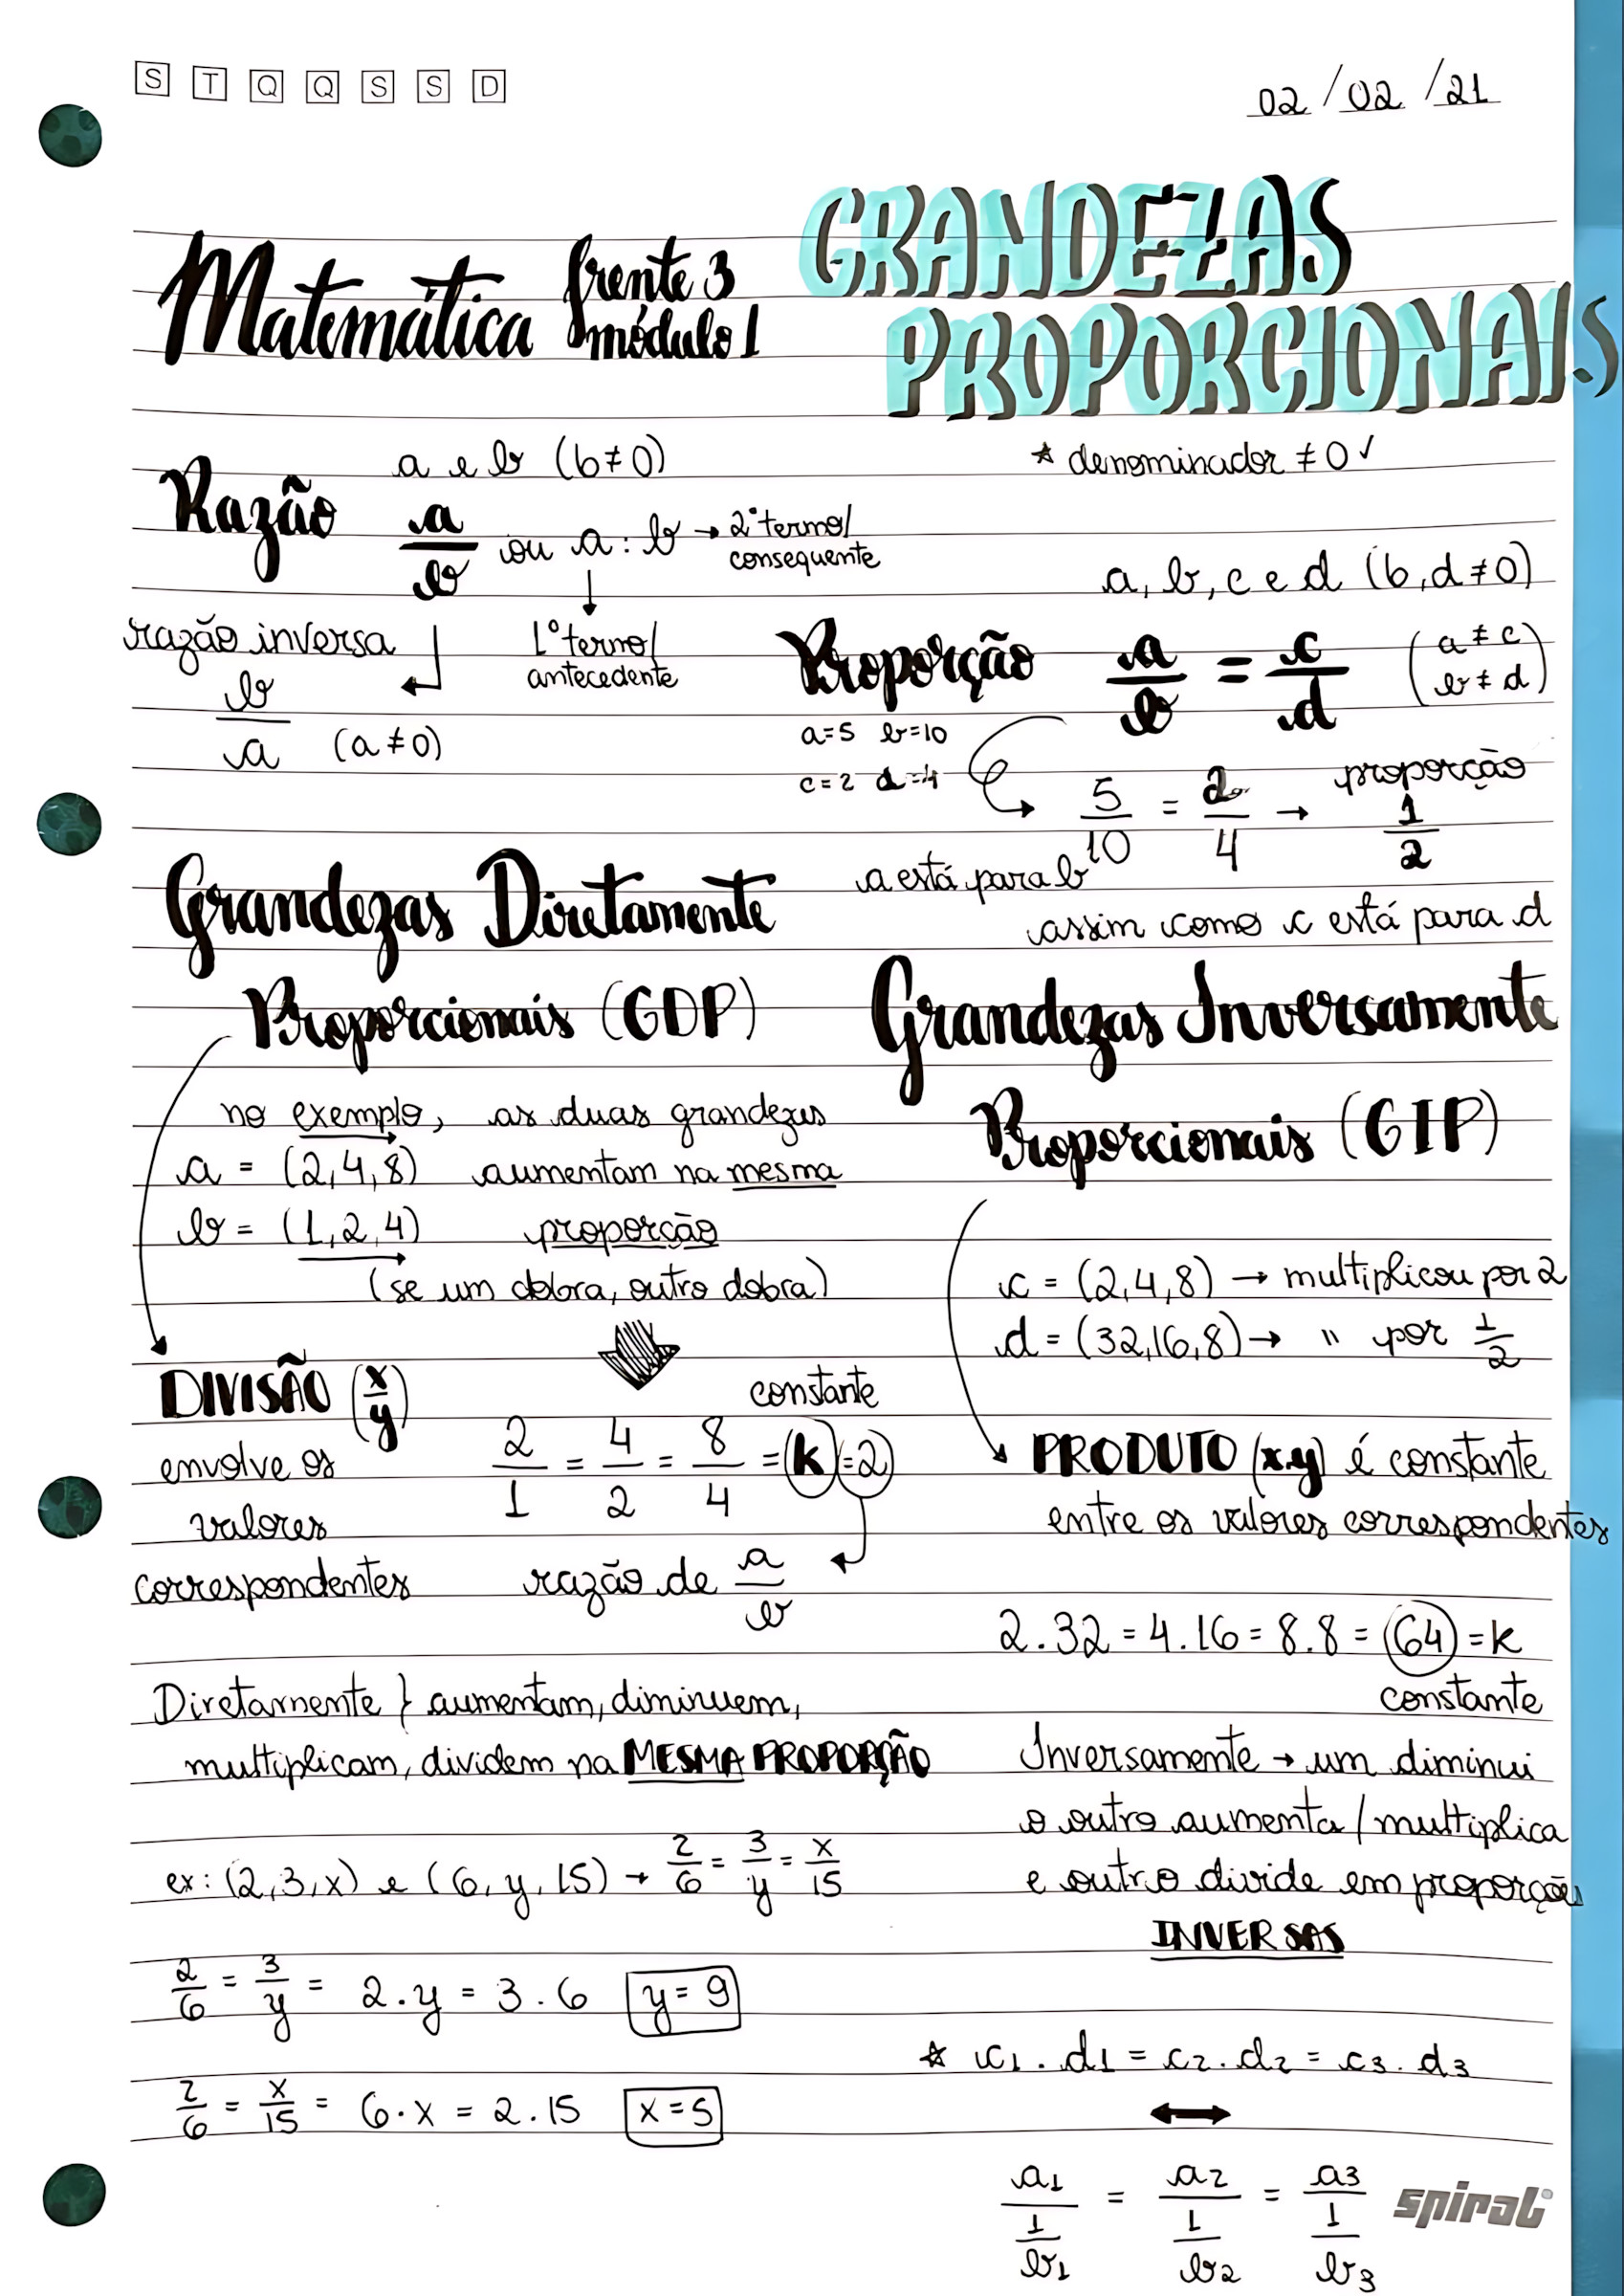 S T Q Q S S D
02/02/21
Matemática frente 3 módulo 1
GRANDEZAS
PROPORCIONAIS
* denominador ≠ 0 ✓
Razão
a e b (b≠0)
a/b ou a : b → 2º termo/
consequente
↓
1º termo/
antecedente
razão inversa
b/a (a≠0)
a, b, c e d (b, d ≠ 0)
Proporção a/b = c/d (a ≠ c
b ≠ d)
a=5 b=10
c=2 d=4
5/10 = 2/4 → proporção
1/2
a está para b
assim como c está para d
Grandezas Diretamente
Proporcionais (GDP)
no exemplo, as duas grandezas
a = (2,4,8) aumentam na mesma
b = (1,2,4) proporção
(se um dobra, outro dobra)
DIVISÃO (x/y)
envolve os
valores
correspondentes
constante
2/1 = 4/2 = 8/4 = k = 2
razão de a/b
Diretamente } aumentam, diminuem,
multiplicam, dividem na MESMA PROPORÇÃO
ex: (2,3,x) e (6,y,15) → 2/6 = 3/y = x/15
2/6 = 3/y = 2.y = 3.6 y = 9
2/6 = x/15 = 6.x = 2.15 x = 5
Grandezas Inversamente
Proporcionais (GIP)
c = (2,4,8) → multiplicou por 2
d = (32,16,8) → " por 1/2
PRODUTO (x.y) é constante
entre os valores correspondentes
2.32 = 4.16 = 8.8 = 64 = k
constante
Inversamente → um diminui
o outro aumenta / multiplica
e outro divide em proporções
INVERSAS
* c1.d1 = c2.d2 = c3.d3
↔
a1/(1/b1) = a2/(1/b2) = a3/(1/b3)
spiral